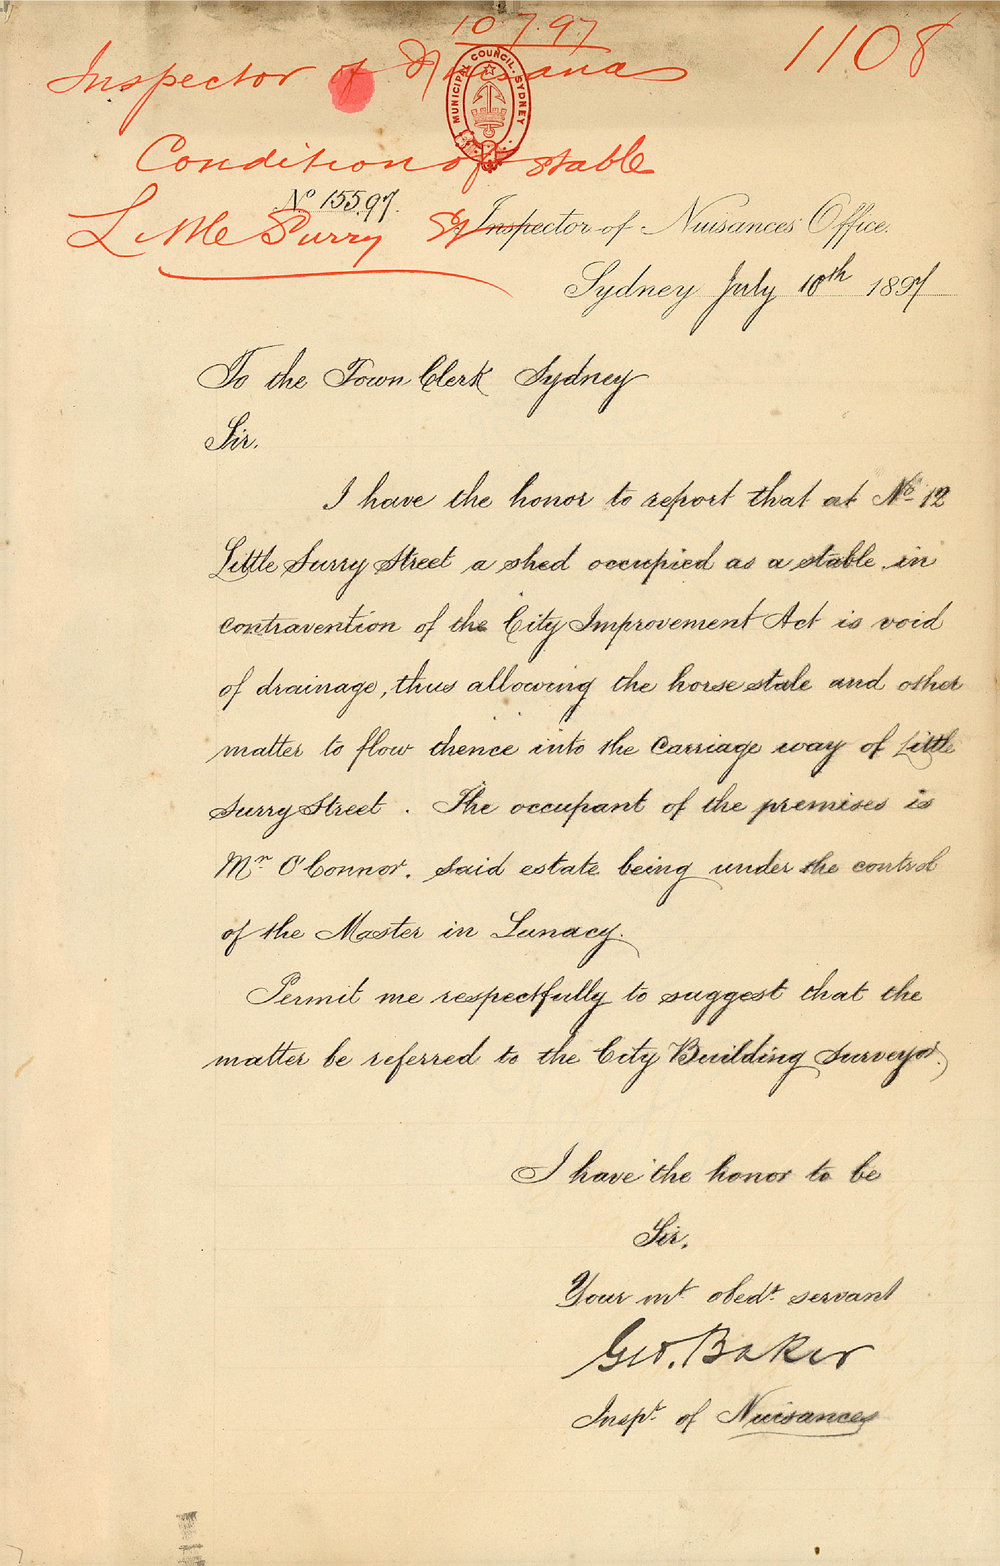 10.7.97
1108
Inspector of Nuisances
MUNICIPAL COUNCIL. SYDNEY
Condition of stable
Little Surry St
No 155.97.
Inspector of Nuisances Office.
Sydney July 10th 1897
To the Town Clerk Sydney
Sir.
I have the honor to report that at No 12
Little Surry Street a shed occupied as a stable in
contravention of the City Improvement Act is void
of drainage, thus allowing the horse stale and other
matter to flow thence into the Carriage way of Little
Surry Street. The occupant of the premises is
Mr O'Connor. Said estate being under the control
of the Master in Lunacy.
Permit me respectfully to suggest that the
matter be referred to the City Building Surveyor.
I have the honor to be
Sir.
Your mt obedt servant
Geo. Baker
Inspt of Nuisances